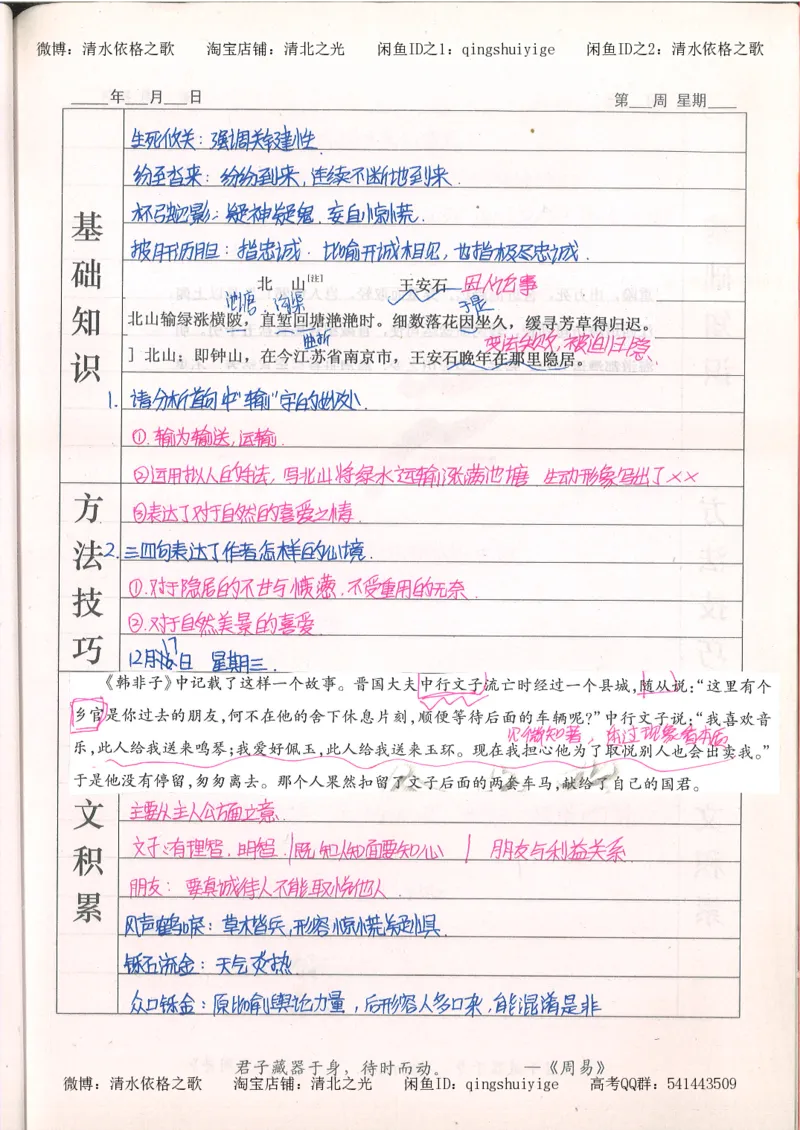 微博：清水依格之歌 淘宝店铺：清北之光 闲鱼ID之1：qingshuiyige 闲鱼ID之2：清水依格之歌
年 月 日 第 周 星期
基础知识
生死攸关：强调关键性
纷至沓来：纷纷到来，连续不断地到来．
杯弓蛇影：疑神疑鬼．妄自惊慌．
披肝沥胆：指忠诚．比喻开诚相见，也指极尽忠诚．
北 山[注] 王安石
池塘 沟渠 于是
北山输绿涨横陂，直堑回塘滟滟时。细数落花因坐久，缓寻芳草得归迟。
变法失败，被迫归隐．
］北山：即钟山，在今江苏省南京市，王安石晚年在那里隐居。
1．请分析首句中“输”字的妙处．
①．输为输送，运输．
②运用拟人的手法，写北山将绿水运输涨满池塘 生动形象写出了××
方法技巧
③表达了对于自然的喜爱之情．
2．三四句表达了作者怎样的心境．
①．对于隐居的不甘与愤懑．不受重用的无奈．
②．对于自然美景的喜爱．
12月17日 星期三．
《韩非子》中记载了这样一个故事。晋国大夫中行文子流亡时经过一个县城，随从说：“这里有个
乡官是你过去的朋友，何不在他的舍下休息片刻，顺便等待后面的车辆呢？”中行文子说：“我喜欢音
见微知著，透过现象看本质
乐，此人给我送来鸣琴；我爱好佩玉，此人给我送来玉环。现在我担心他为了取悦别人也会出卖我。”
于是他没有停留，匆匆离去。那个人果然扣留了文子后面的两套车马，献给了自己的国君。
文积累
主要从主人公方面立意．
文子：有理智．明智．|既知人知面要知心 | 朋友与利益关系．
朋友：要真诚待人不能取悦他人．
风声鹤唳：草木皆兵，形容惊慌疑惧．
铄石流金：天气炎热．
众口铄金：原比喻舆论力量，后形容人多口杂，能混淆是非
君子藏器于身，待时而动。 —《周易》
微博：清水依格之歌 淘宝店铺：清北之光 闲鱼ID：qingshuiyige 高考QQ群：541443509